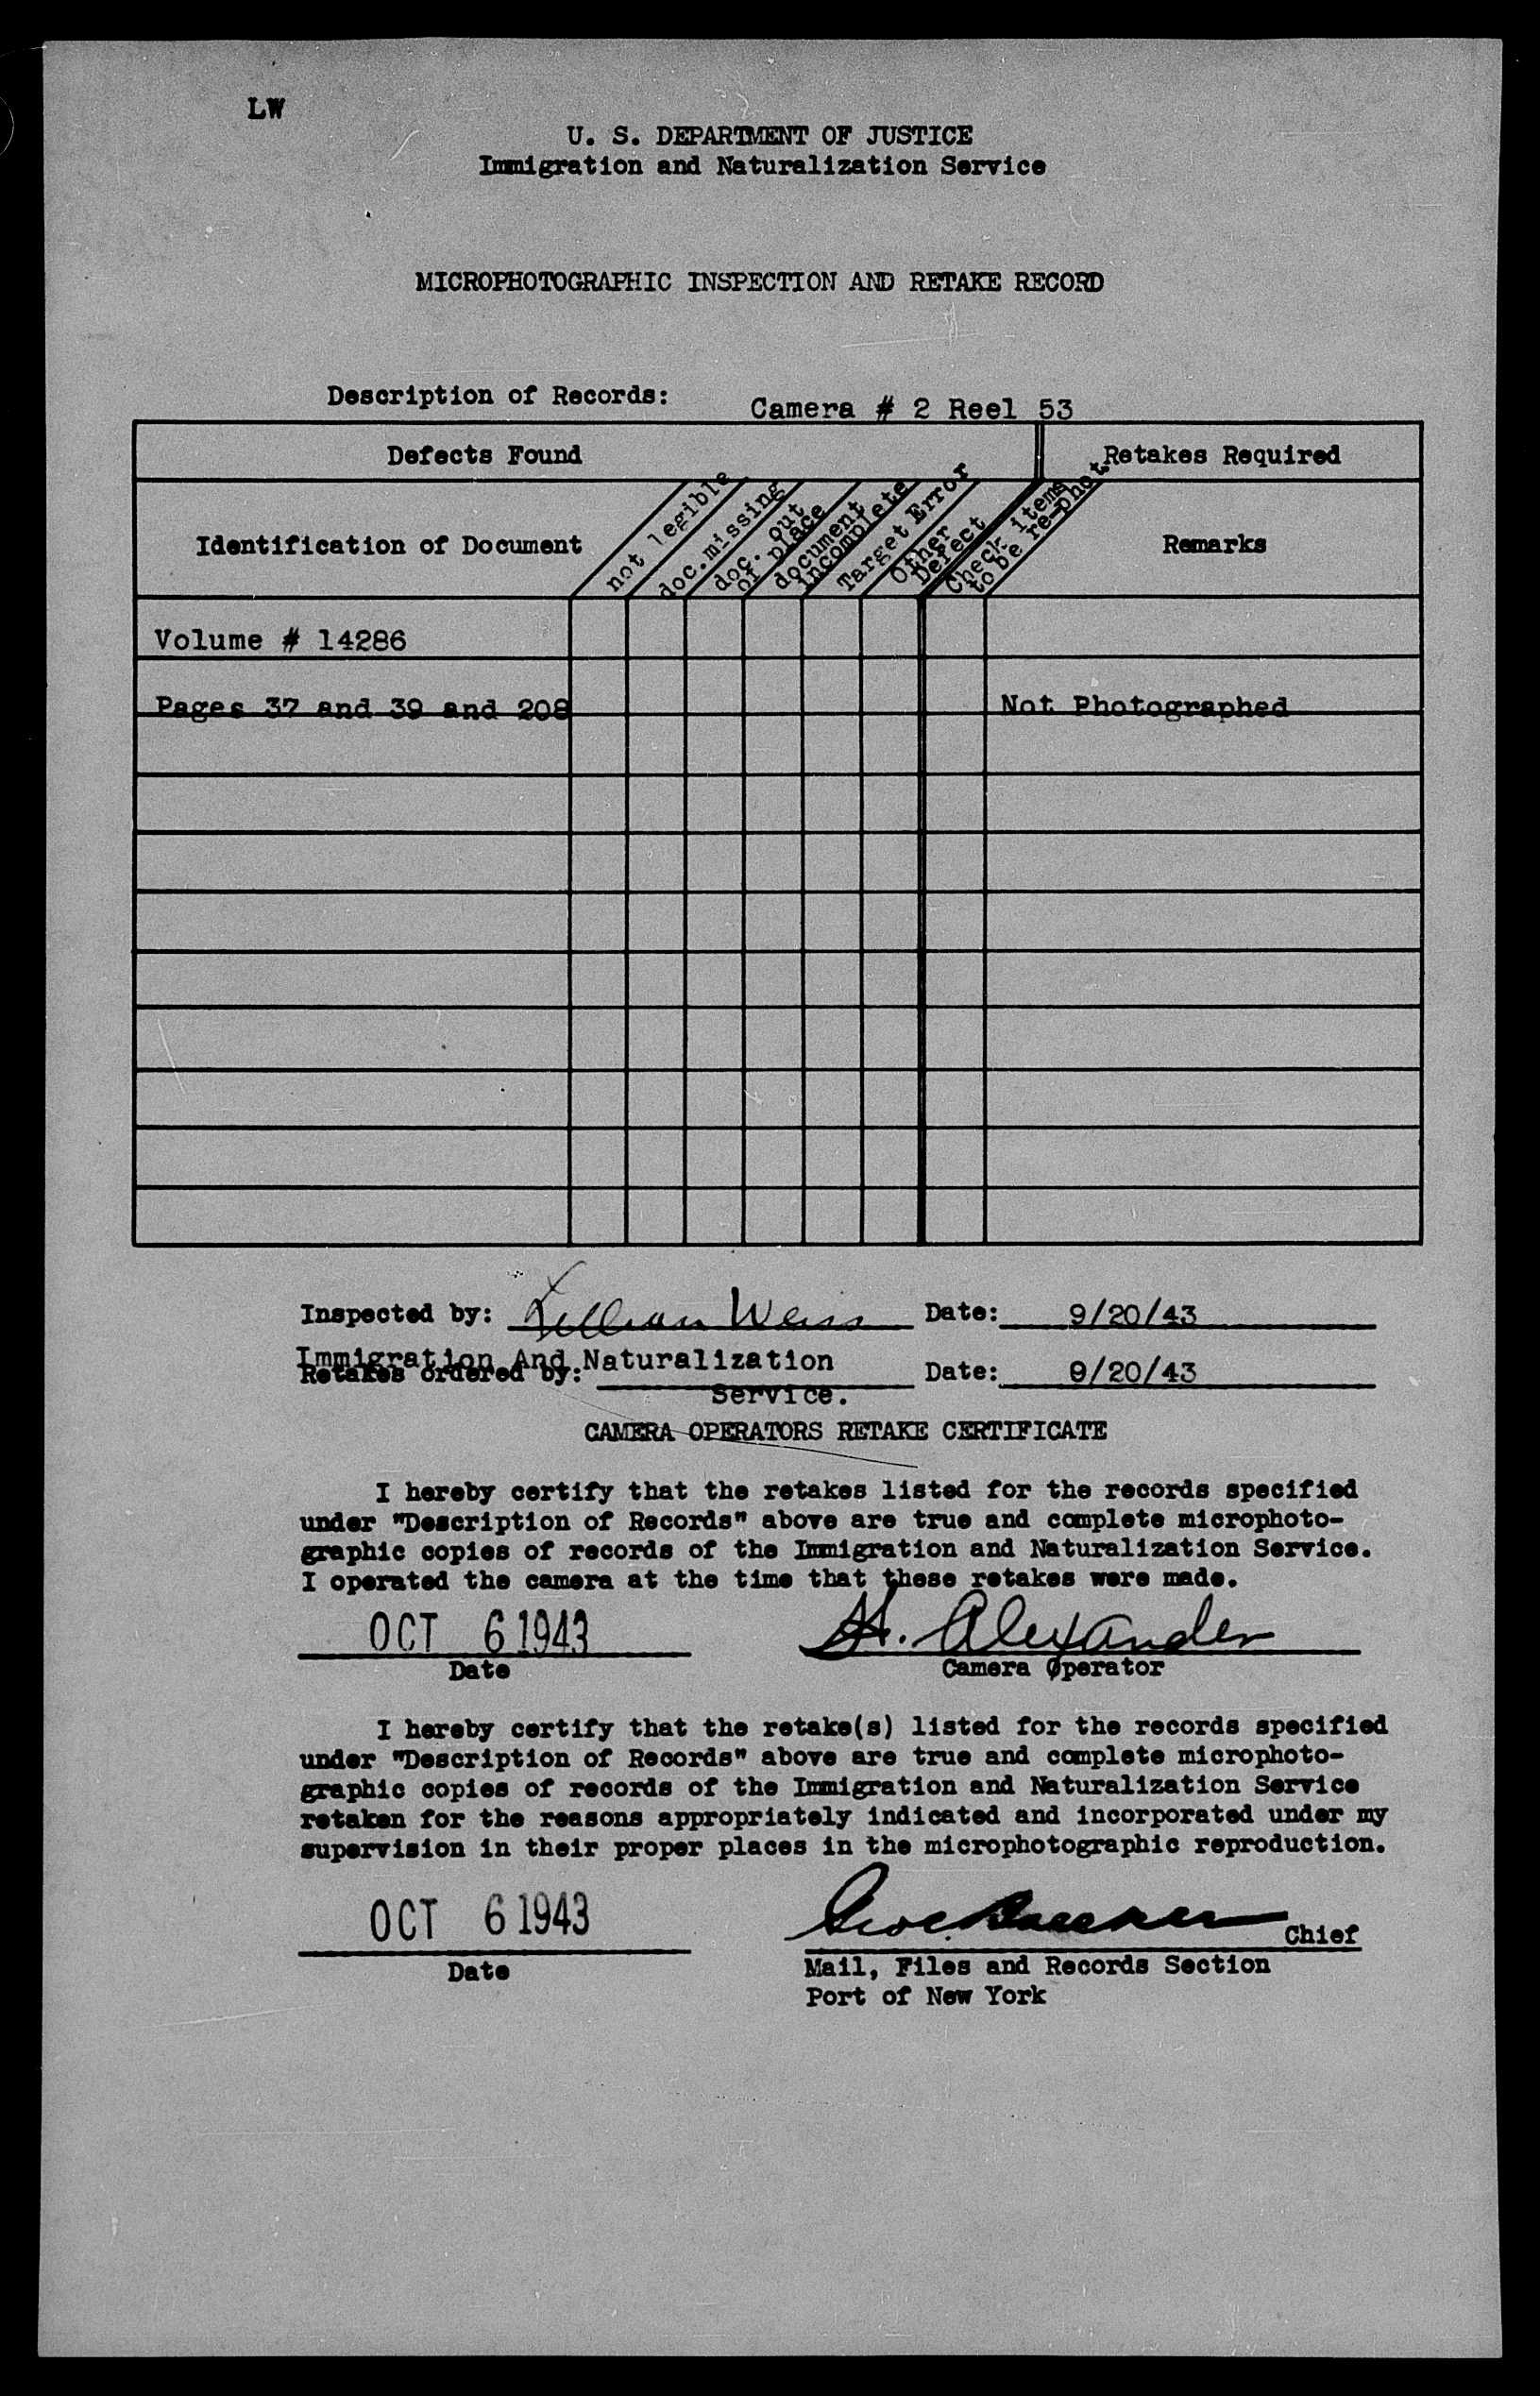 LW
U. S. DEPARTMENT OF JUSTICE
Immigration and Naturalization Service
MICROPHOTOGRAPHIC INSPECTION AND RETAKE RECORD
Description of Records: Camera # 2 Reel 53
Defects Found Retakes Required
Identification of Document
not legible
doc.missing
doc. out
of place
document
incomplete
Target Error
Other
Defect
Check items
to be re-phot
Remarks
Volume # 14286
Pages 37 and 39 and 208 Not Photographed
Inspected by: Lillian Weiss Date: 9/20/43
Immigration And Naturalization
Retakes ordered by: Date: 9/20/43
Service.
CAMERA OPERATORS RETAKE CERTIFICATE
I hereby certify that the retakes listed for the records specified
under "Description of Records" above are true and complete microphoto-
graphic copies of records of the Immigration and Naturalization Service.
I operated the camera at the time that these retakes were made.
OCT 6 1943 H. Alexander
Date Camera Operator
I hereby certify that the retake(s) listed for the records specified
under "Description of Records" above are true and complete microphoto-
graphic copies of records of the Immigration and Naturalization Service
retaken for the reasons appropriately indicated and incorporated under my
supervision in their proper places in the microphotographic reproduction.
OCT 6 1943 Chief
Date Mail, Files and Records Section
Port of New York